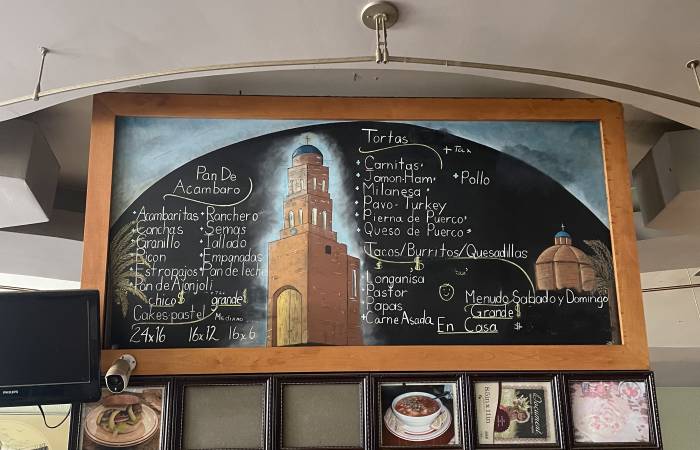 Pan De
Acambaro
Acambaritas
Conchas
Granillo
Picon
Estropajos
Pan de Ajonjoli
Ranchero
Semas
Tallado
Empanadas
Pan de leche
chico $ grande $
Cakes-pastel Mediano
24x16 16x12 16x6
Tortas
+ Tax
Carnitas
Jamon-Ham
Milanesa
Pavo-Turkey
Pierna de Puerco
Queso de Puerco
Pollo
Tacos/Burritos/Quesadillas
$ $
Longanisa
Pastor
Papas
Carne Asada
Menudo Sabado y Domingo
Grande $
En Casa $
PHILIPS
8.5in x 11in
Document